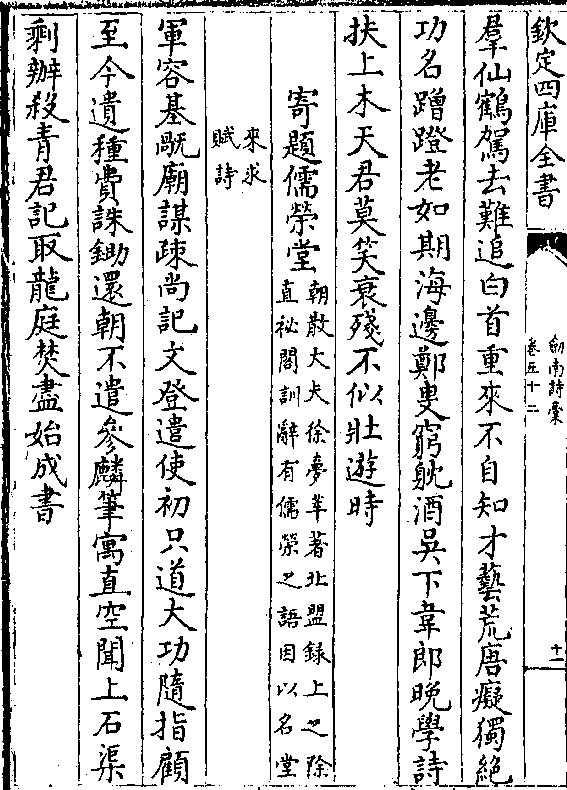 欽定四庫全書
劒南詩稾
卷五十二
十一
羣仙鶴駕去難追白首重來不自知才藝荒唐癡獨絶
功名蹭蹬老如期海邊鄭叟窮躭酒吳下韋郎晚學詩
扶上木天君莫笑衰殘不似壯遊時
寄題儒榮堂
朝散大夫徐夢莘著北盟録上之除
直祕閣訓辭有儒榮之語因以名堂
來求
賦詩
軍容基敗廟謀疎尚記文登遣使初只道大功隨指顧
至今遺種費誅鋤還朝不遣參麟筆寓直空聞上石渠
剰辦殺青君記取龍庭焚盡始成書